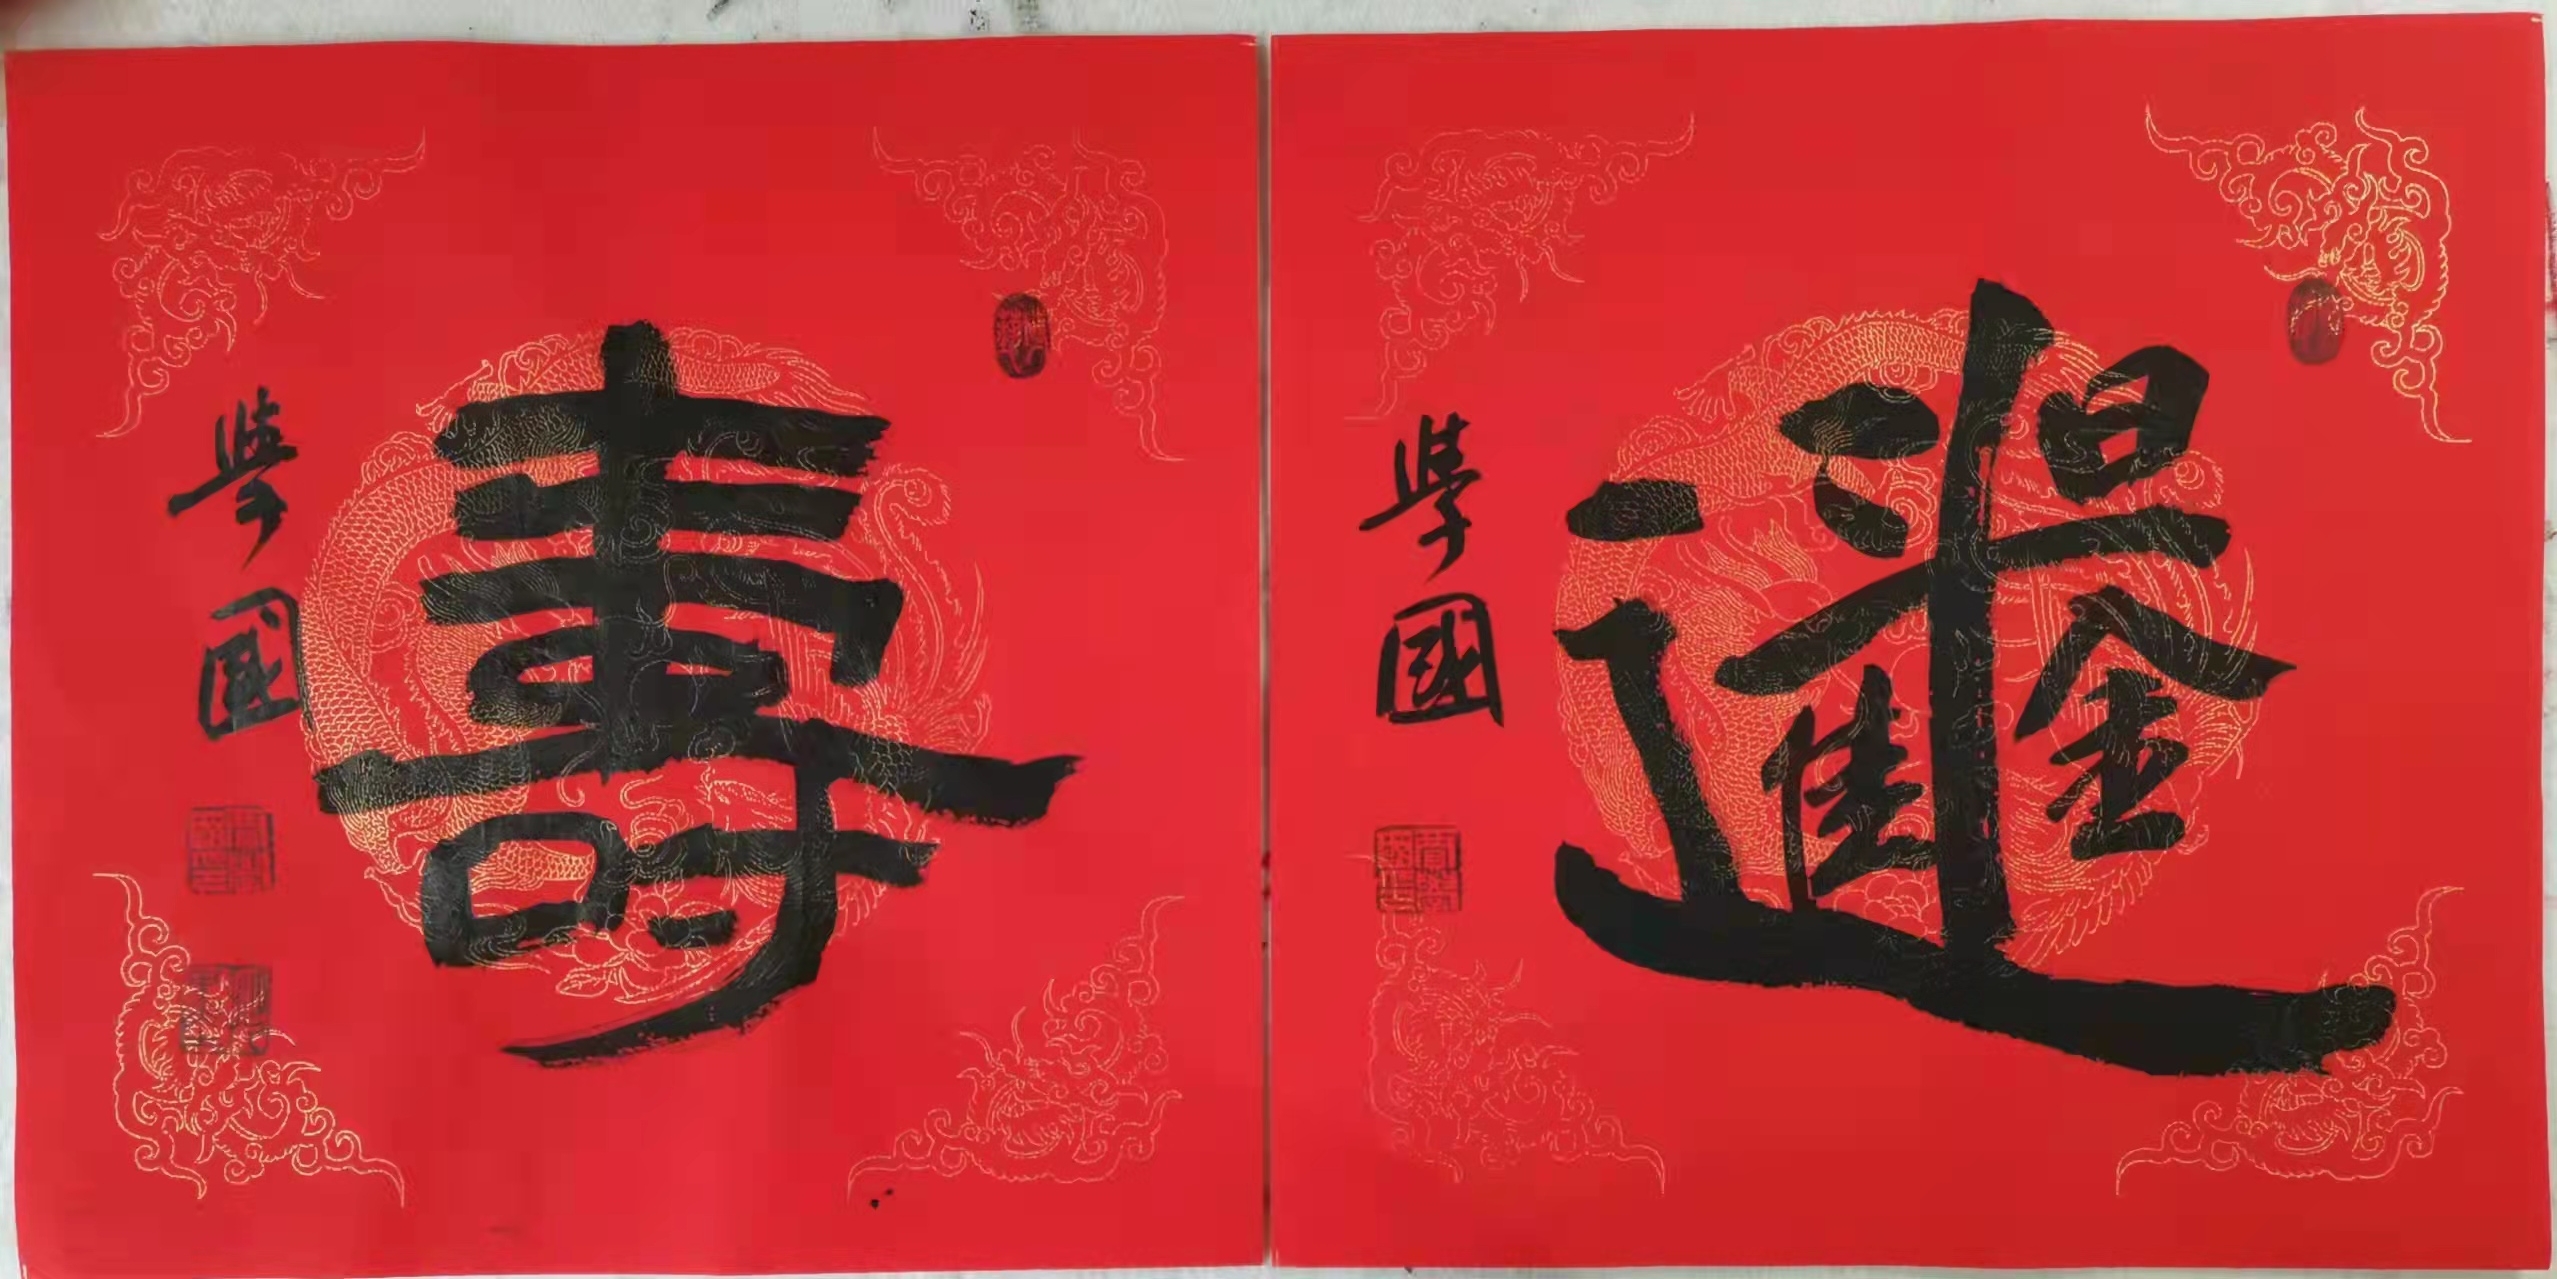 壽
學國
日進斗金
學國